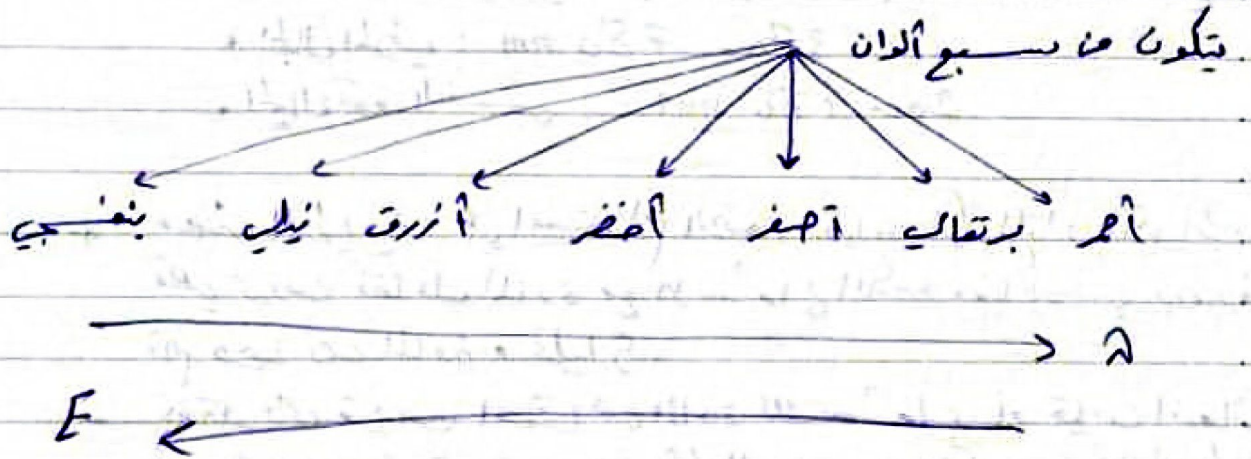 يتكون من سبع ألوان
أحمر برتقالي أصفر أخضر أزرق نيلي بنفسجي
λ
E